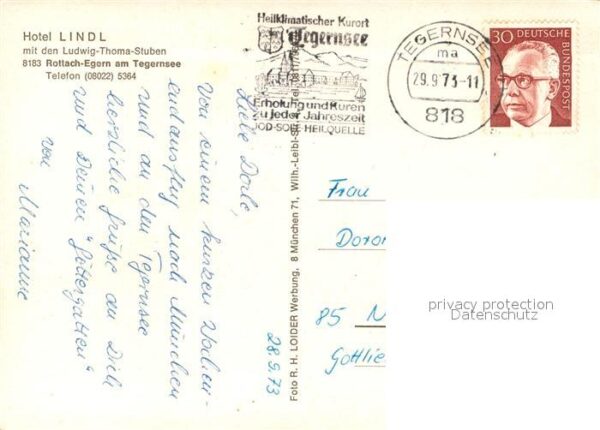 Hotel LINDL
mit den Ludwig-Thoma-Stuben
8183 Rottach-Egern am Tegernsee
Telefon (08022) 5364
Heilklimatischer Kurort
Tegernsee
Erholung und Kuren
zu jeder Jahreszeit
JOD-SOLE-HEILQUELLE
TEGERNSEE
ma
29.9.73-11
818
30
DEUTSCHE
BUNDESPOST
28.9.73
Liebe Dorle,
von einem kurzen Wochen-
endausflug nach München
und an den Tegernsee
herzliche Grüße an Dich
und Deinen "Göttergatten"
von
Marianne
Foto R. H. LOIDER Werbung, 8 München 71, Wilh.-Leibl-St
Frau
Doro
85 N
Gottlie
privacy protection
Datenschutz